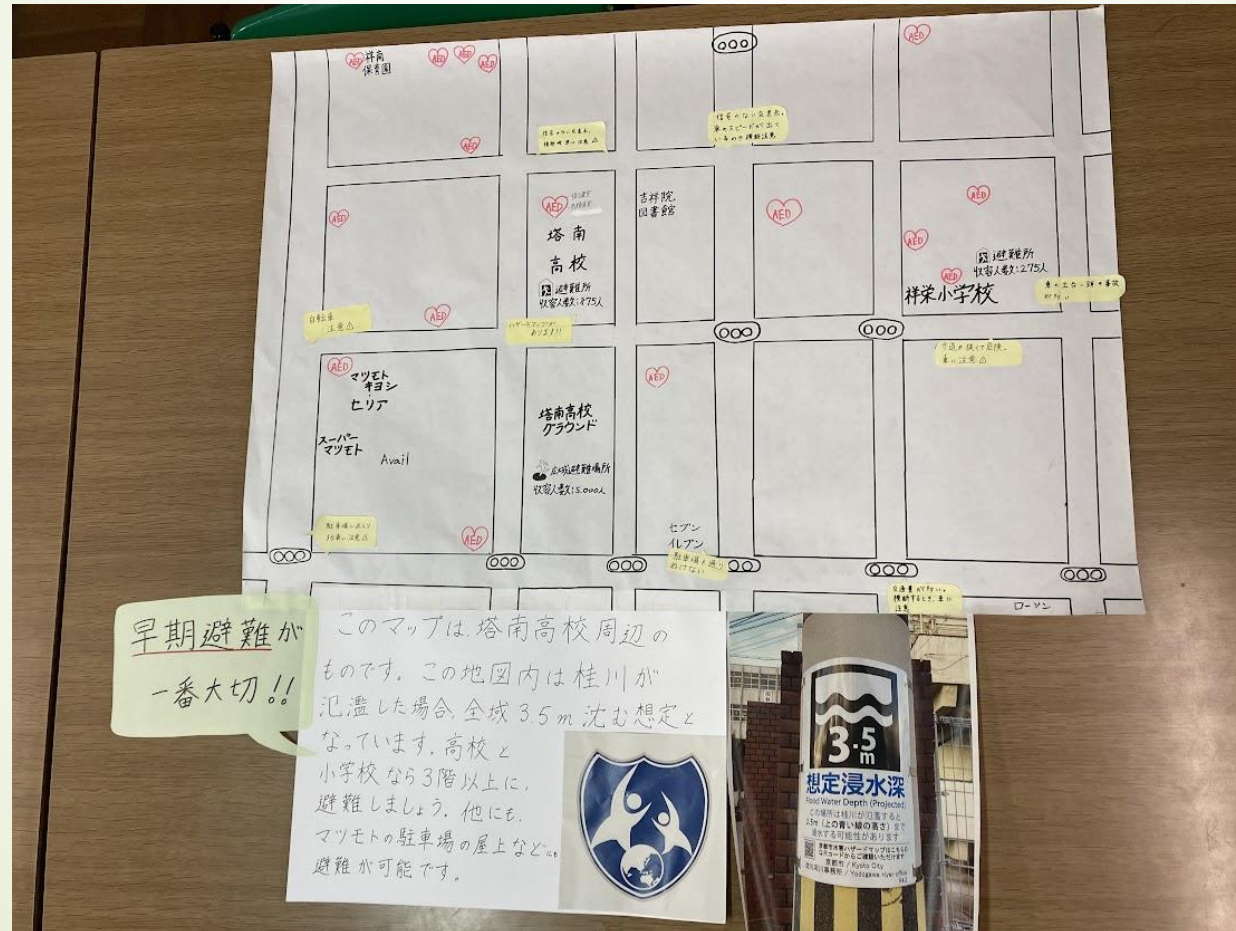 AED
祥南
保育園
AED
AED
AED
AED
AED
信号のない交差点。
車のスピードが出て
いるので横断注意
AED
AED
AED
塔南
高校
避難所
収容人数:275人
吉祥院
図書館
AED
AED
AED
AED
避難所
収容人数:275人
祥栄小学校
自転車
注意⚠
AED
ハザードマップが
あります!!
道が狭くて危険。
車に注意⚠
AED
マツモト
キヨシ
セリア
スーパー
マツモト
Avail
塔南高校
グラウンド
広域避難場所
収容人数:5,000人
AED
AED
セブン
イレブン
駐車場を通り
ぬけない
交通量が多い。
横断するとき、車に
注意
ローソン
早期避難が
一番大切!!
このマップは、塔南高校周辺の
ものです。この地図内は桂川が
氾濫した場合、全域3.5m沈む想定と
なっています。高校と
小学校なら3階以上に、
避難しましょう。他にも、
マツモトの駐車場の屋上などにも
避難が可能です。
3.5m
想定浸水深
Flood Water Depth (Projected)
この場所は桂川が氾濫すると
3.5m(上の青い線の高さ)まで
浸水する可能性があります
京都市水害ハザードマップはこちらの
QRコードからご確認いただけます
京都市 / Kyoto City
淀川河川事務所 / Yodogawa river office